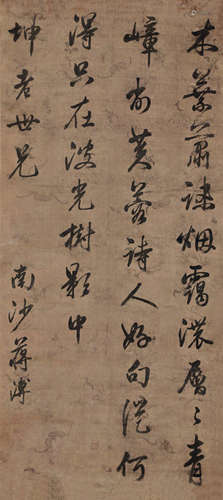 木葉蕭疎烟靄濃層々青
嶂削芙蓉詩人好句從何
得只在波光樹影中
坤老世兄 南沙蔣溥